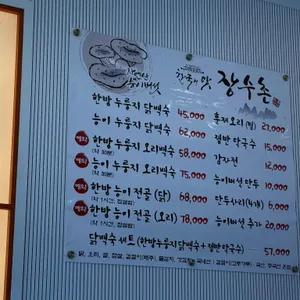 장수촌
한방 누룽지 닭백숙 45,000
능이 누룽지 닭백숙 62,000
예약 한방 누룽지 오리백숙 58,000
예약 능이 누룽지 오리백숙 75,000
예약 한방 능이 전골 (닭) 68,000
예약 한방 능이 전골 (오리) 78,000
닭백숙 세트 (한방누룽지닭백숙 + 쟁반막국수) 57,000
훈제오리 23,000
쟁반 막국수 15,000
감자전 12,000
능이버섯 만두 10,000
만두사리 (4개) 6,000
능이버섯 추가 20,000